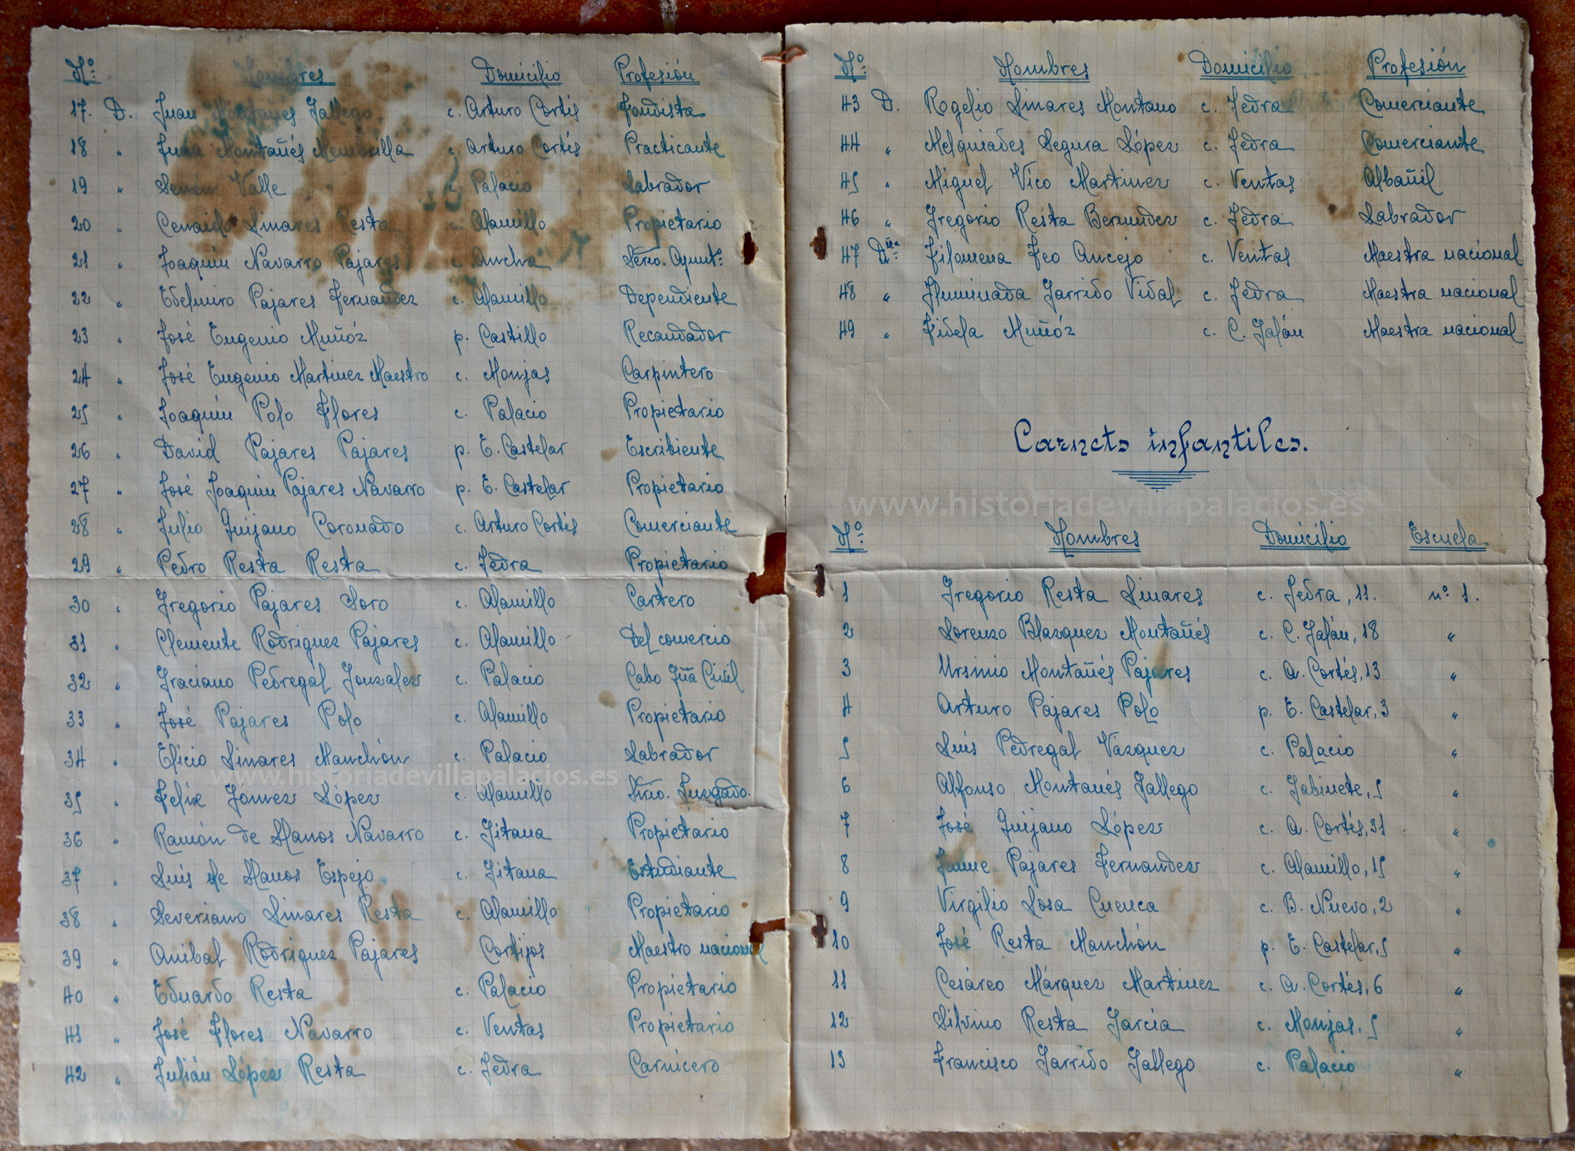 Nº Nombres Domicilio Profesión
17. D. Juan Montañés Gallego c. Arturo Cortés Fondista
18 " Juan Montañés Membrilla c. Arturo Cortés Practicante
19 " Valle c. Palacio Labrador
20 " Linares Resta c. Alamillo Propietario
21 " Joaquín Navarro Pajares c. Ancha Srio. Ayunt.º
22 " Edelmiro Pajares Fernandez c. Alamillo Dependiente
23 " José Eugenio Muñóz p. Castillo Recaudador
24 " José Eugenio Martinez Maestro c. Monjas Carpintero
25 " Joaquín Polo Flores c. Palacio Propietario
26 " David Pajares Pajares p. E. Castelar Escribiente
27 " José Joaquín Pajares Navarro p. E. Castelar Propietario
28 " Julio Quijano Coronado c. Arturo Cortés Comerciante
29 " Pedro Resta Resta c. Jedra Propietario
30 " Gregorio Pajares Loro c. Alamillo Cartero
31 " Clemente Rodriguez Pajares c. Alamillo Del comercio
32 " Graciano Pedregal Gonzalez c. Palacio Cabo Gª Civil
33 " José Pajares Polo c. Alamillo Propietario
34 " Elicio Linares Manchón c. Palacio Labrador
35 " Felix Gómez López c. Alamillo Srio. Juzgado.
36 " Ramón de Llanos Navarro c. Gitana Propietario
37 " Luis de Llanos Espejo c. Gitana Estudiante
38 " Severiano Linares Resta c. Alamillo Propietario
39 " Anibal Rodriguez Pajares Cortijos Maestro nacional
40 " Eduardo Resta c. Palacio Propietario
41 " José Flores Navarro c. Ventas Propietario
42 " Julián López Resta c. Jedra Carnicero
www.historiadevillapalacios.es
Nº Nombres Domicilio Profesión
43 D. Rogelio Linares Montano c. Jedra Comerciante
44 " Melquiades Segura López c. Jedra Comerciante
45 " Miguel Vico Martinez c. Ventas Albañil
46 " Gregorio Resta Bermudez c. Jedra Labrador
47 Dña Filomena Feo Ancejo c. Ventas Maestra nacional
48 " Iluminada Garrido Vidal c. Jedra Maestra nacional
49 " Fidela Muñóz c. C. Galán Maestra nacional
Carnets infantiles.
www.historiadevillapalacios.es
Nº Nombres Domicilio Escuela
1 Gregorio Resta Linares c. Jedra, 11. nº 1.
2 Lorenzo Blazquez Montañés c. C. Galán, 18 "
3 Ursinio Montañés Pajares c. A. Cortés, 13 "
4 Arturo Pajares Polo p. E. Castelar, 3 "
5 Luis Pedregal Vázquez c. Palacio "
6 Alfonso Montañés Gallego c. Gabinete, 5 "
7 José Quijano López c. A. Cortés, 31 "
8 Jaime Pajares Fernandez c. Alamillo, 15 "
9 Virgilio Sosa Cuenca c. B. Nuevo, 2 "
10 José Resta Manchón p. E. Castelar, 5 "
11 Cesáreo Márquez Martinez c. A. Cortés, 6 "
12 Silvino Resta García c. Monjas, 5 "
13 Francisco Garrido Gallego c. Palacio "